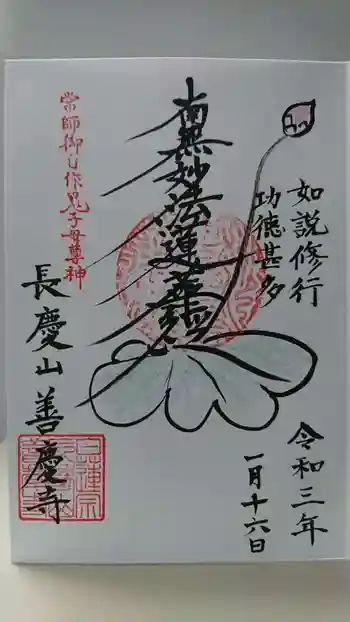 如説修行
功徳甚多
令和三年
一月十六日
南無妙法蓮華經
宗師御自作鬼子母尊神
長慶山善慶寺
日蓮宗